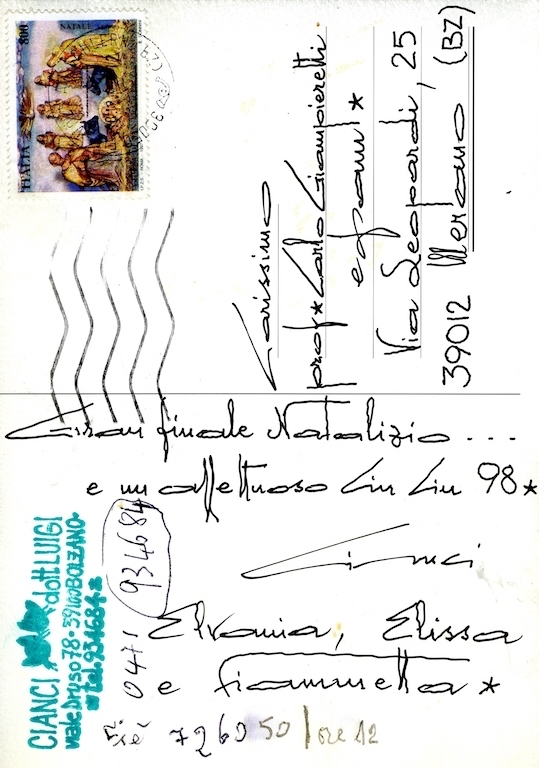 ITALIA
NATALE
800
Carissimo
prof* Carlo Giampieretti
e fam*
Via Leopardi, 25
39012 Merano (BZ)
Gran finale Natalizio ...
e un affettuoso Cin Cin 98*
Cianci
Elvania, Elissa
e fiammetta*
CIANCI dott LUIGI
viale Druso 78 • 39100 BOLZANO •
tel. 934684
0471 934684
72605 50 / ore 12